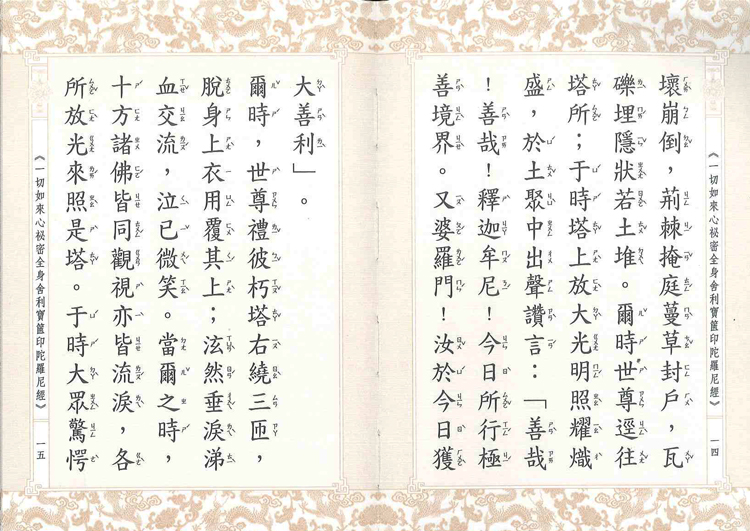 壞崩倒，荊棘掩庭蔓草封戶，瓦
礫埋隱狀若土堆。爾時世尊逕往
塔所；于時塔上放大光明照耀熾
盛，於土聚中出聲讚言：「善哉
！善哉！釋迦牟尼！今日所行極
善境界。又婆羅門！汝於今日獲
《一切如來心祕密全身舍利寶篋印陀羅尼經》 一四
大善利」。
爾時，世尊禮彼朽塔右繞三匝，
脫身上衣用覆其上；泫然垂淚涕
血交流，泣已微笑。當爾之時，
十方諸佛皆同觀視亦皆流淚，各
所放光來照是塔。于時大眾驚愕
《一切如來心祕密全身舍利寶篋印陀羅尼經》 一五